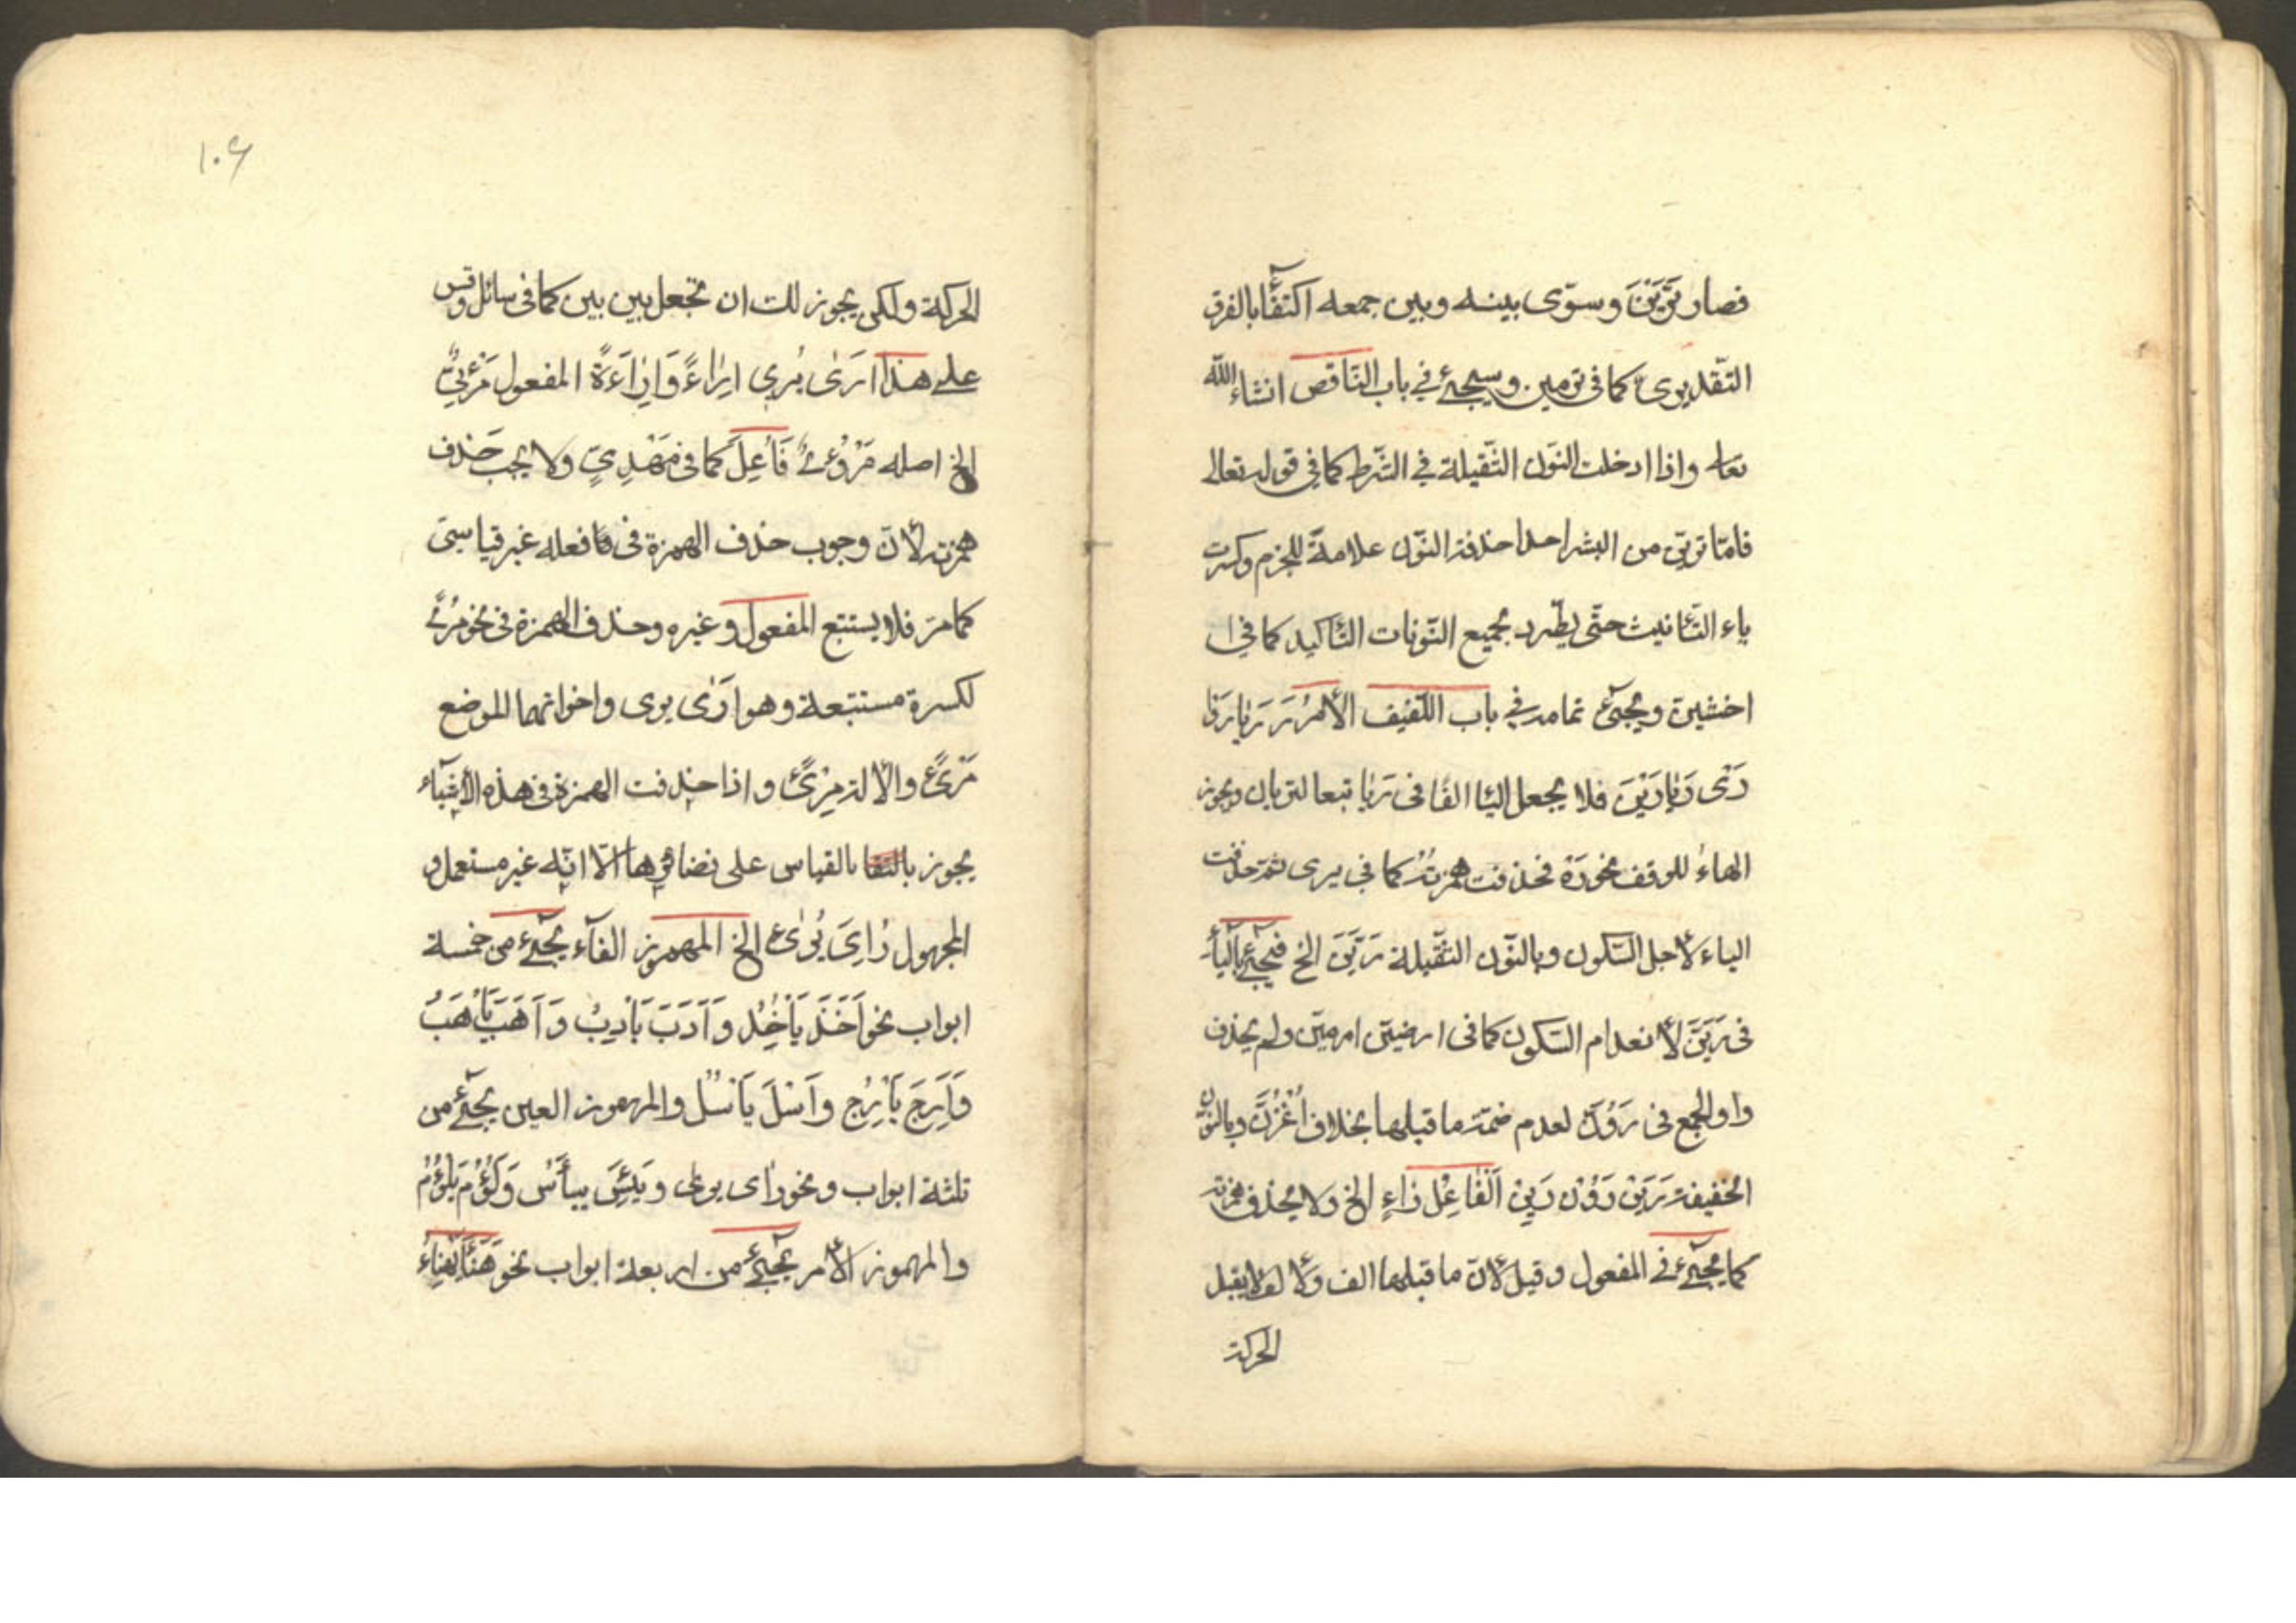 فصار تَرَيْنَ وسوّى بينه وبين جمعه اكتفأ بالفرق
التّقديرى كما فى ترمين وسيجئ فى باب النّاقص انشاء الله
تعا واذا ادخلت النّون الثّقيلة فى الشّرط كما فى قوله تعالى
فامّا ترينّ من البشر احدا حذفت النّون علامة للجزم وكسرت
ياء التّأنيث حتّى يطّرد بجميع النّونات التّأكيد كما فى ا
اخشينّ ويجئ تمامه فى باب اللّفيف الأمْرُ رَ رَيا رَوْا
رَىْ رَيا رَيْنَ فلا يجعل اليا الفًا فى رَيا تبعا لتريان ويجوز
الهاءُ للوقف نحو رَهْ فحذفت همزتُه كما فى يرى ثمّ حذفت
الياء لأجل السّكون وبالنّون الثّقيلة رَيَنَّ الخ فيجئ بالْياء
فى رَيَنَّ لأنعدام السّكون كما فى ارضينّ ارمينّ ولم يحذف
واو الجمع فى رَوُنَّ لعدم ضمّة ما قبلها بخلاف اُغْزُنَّ وبالنّون
الخفيفة رَيَنْ رَوُنْ رَيِنْ اَلْفَاعِلُ رَاءٍ الخ ولا يحذف همزته
كما يجئ فى المفعول وقيل لأنّ ما قبلها الف والألف لا يقبل
الحركة
١٠۶
الحركة ولكن يجوز لك ان تجعل بين بين كما فى سائل وقس
على هذا ارَىٰ يُرِى اِرَاءً وَاِرَاءَةً المفعول مَرْئِىٌّ
الخ اصله مَرْؤُىٌ فَاُعِلَ كما فى مَهْدِىٍّ ولا يجب حَذف
همزته لأنّ وجوب حذف الهمزة فى فعله غير قياسىّ
كما مرّ فلا يستتبع المفعول وغيره وحذف الهمزة فى نحو مُرًى
لكسرة مستتبعة وهو ارَىٰ يرى واخواتهما الموضع
مَرْئً والألة مِرْئً واذا حذفت الهمزة فى هذه الأشياء
يجوز بالقياس على نضائرها الّا انّه غير مستعمل و
المجهول رُاِىَ يُرىٰ الخ المهموز الفاء يجئ من خمسة
ابواب نحو اَخَذَ يَأْخُذُ وَاَدَبَ يَأْدِبُ وَاَهَبَ يَأْهَبُ
وَاَرِجَ يَأْرِجُ واَسُلَ يَأْسُلُ والمهموز العين يجئ من
ثلثة ابواب ونحو رَاى يرى ويَئِسَ ييأسُ وَلَؤُمَ يَلْؤُمُ
والمهموز الأمر يجئ من اربعة ابواب نحو هَنَأَ يَهْنِاءُ